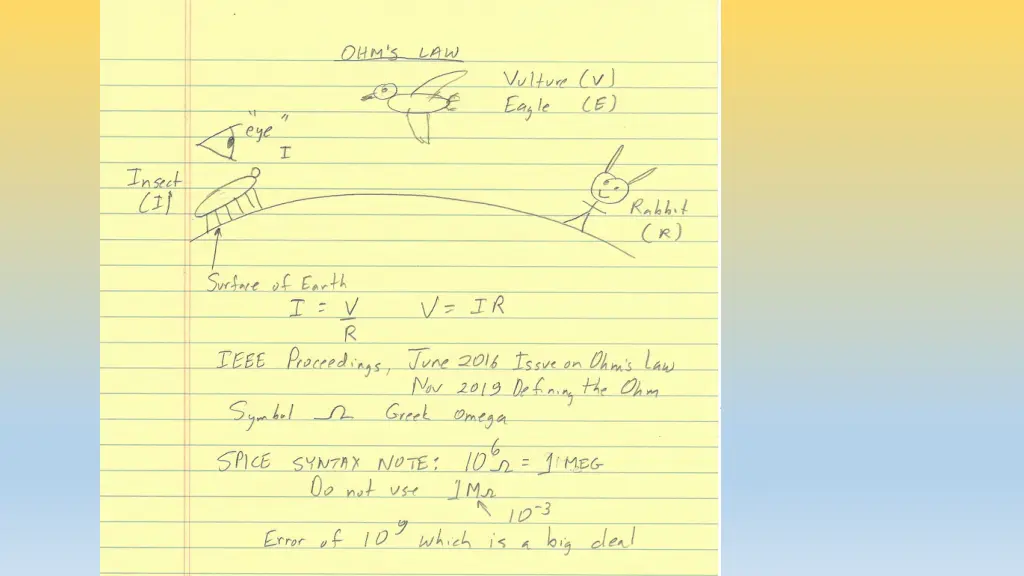 OHM'S LAW
Vulture (V)
Eagle (E)
"eye"
I
Insect
(I)
Rabbit
(R)
Surface of Earth
I = V/R V = IR
IEEE Proceedings, June 2016 Issue on Ohm's Law
Nov 2019 Defining the Ohm
Symbol Ω Greek Omega
SPICE SYNTAX NOTE: 10⁶Ω = 1 MEG
Do not use 1MΩ
10⁻³
Error of 10⁹ which is a big deal